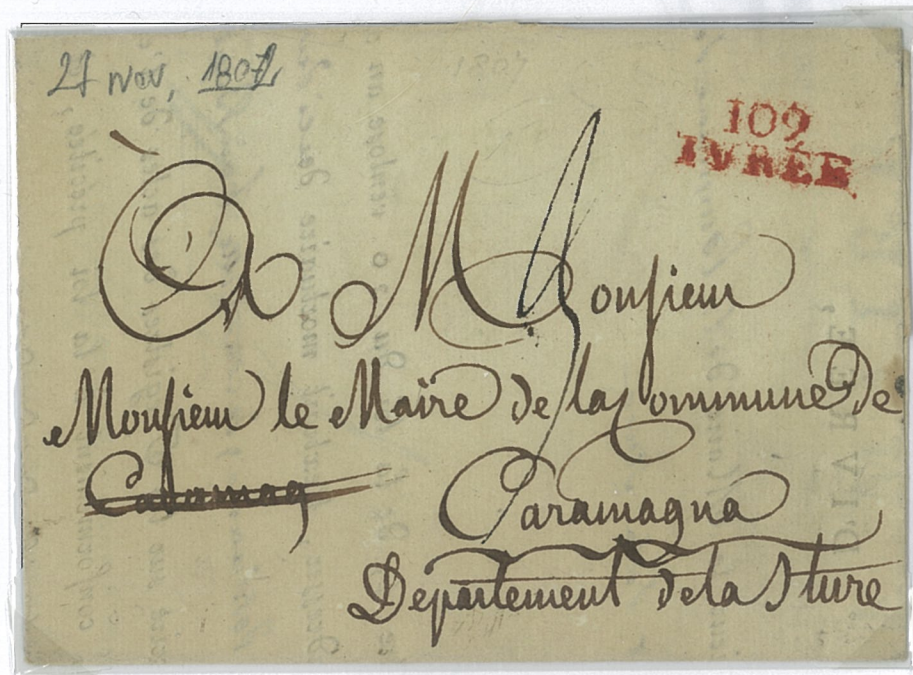 27 Nov. 1807
109
IVRÉE
A Monsieur
Monsieur le Maire de la Commune de
Caramagna
Département de la Sture